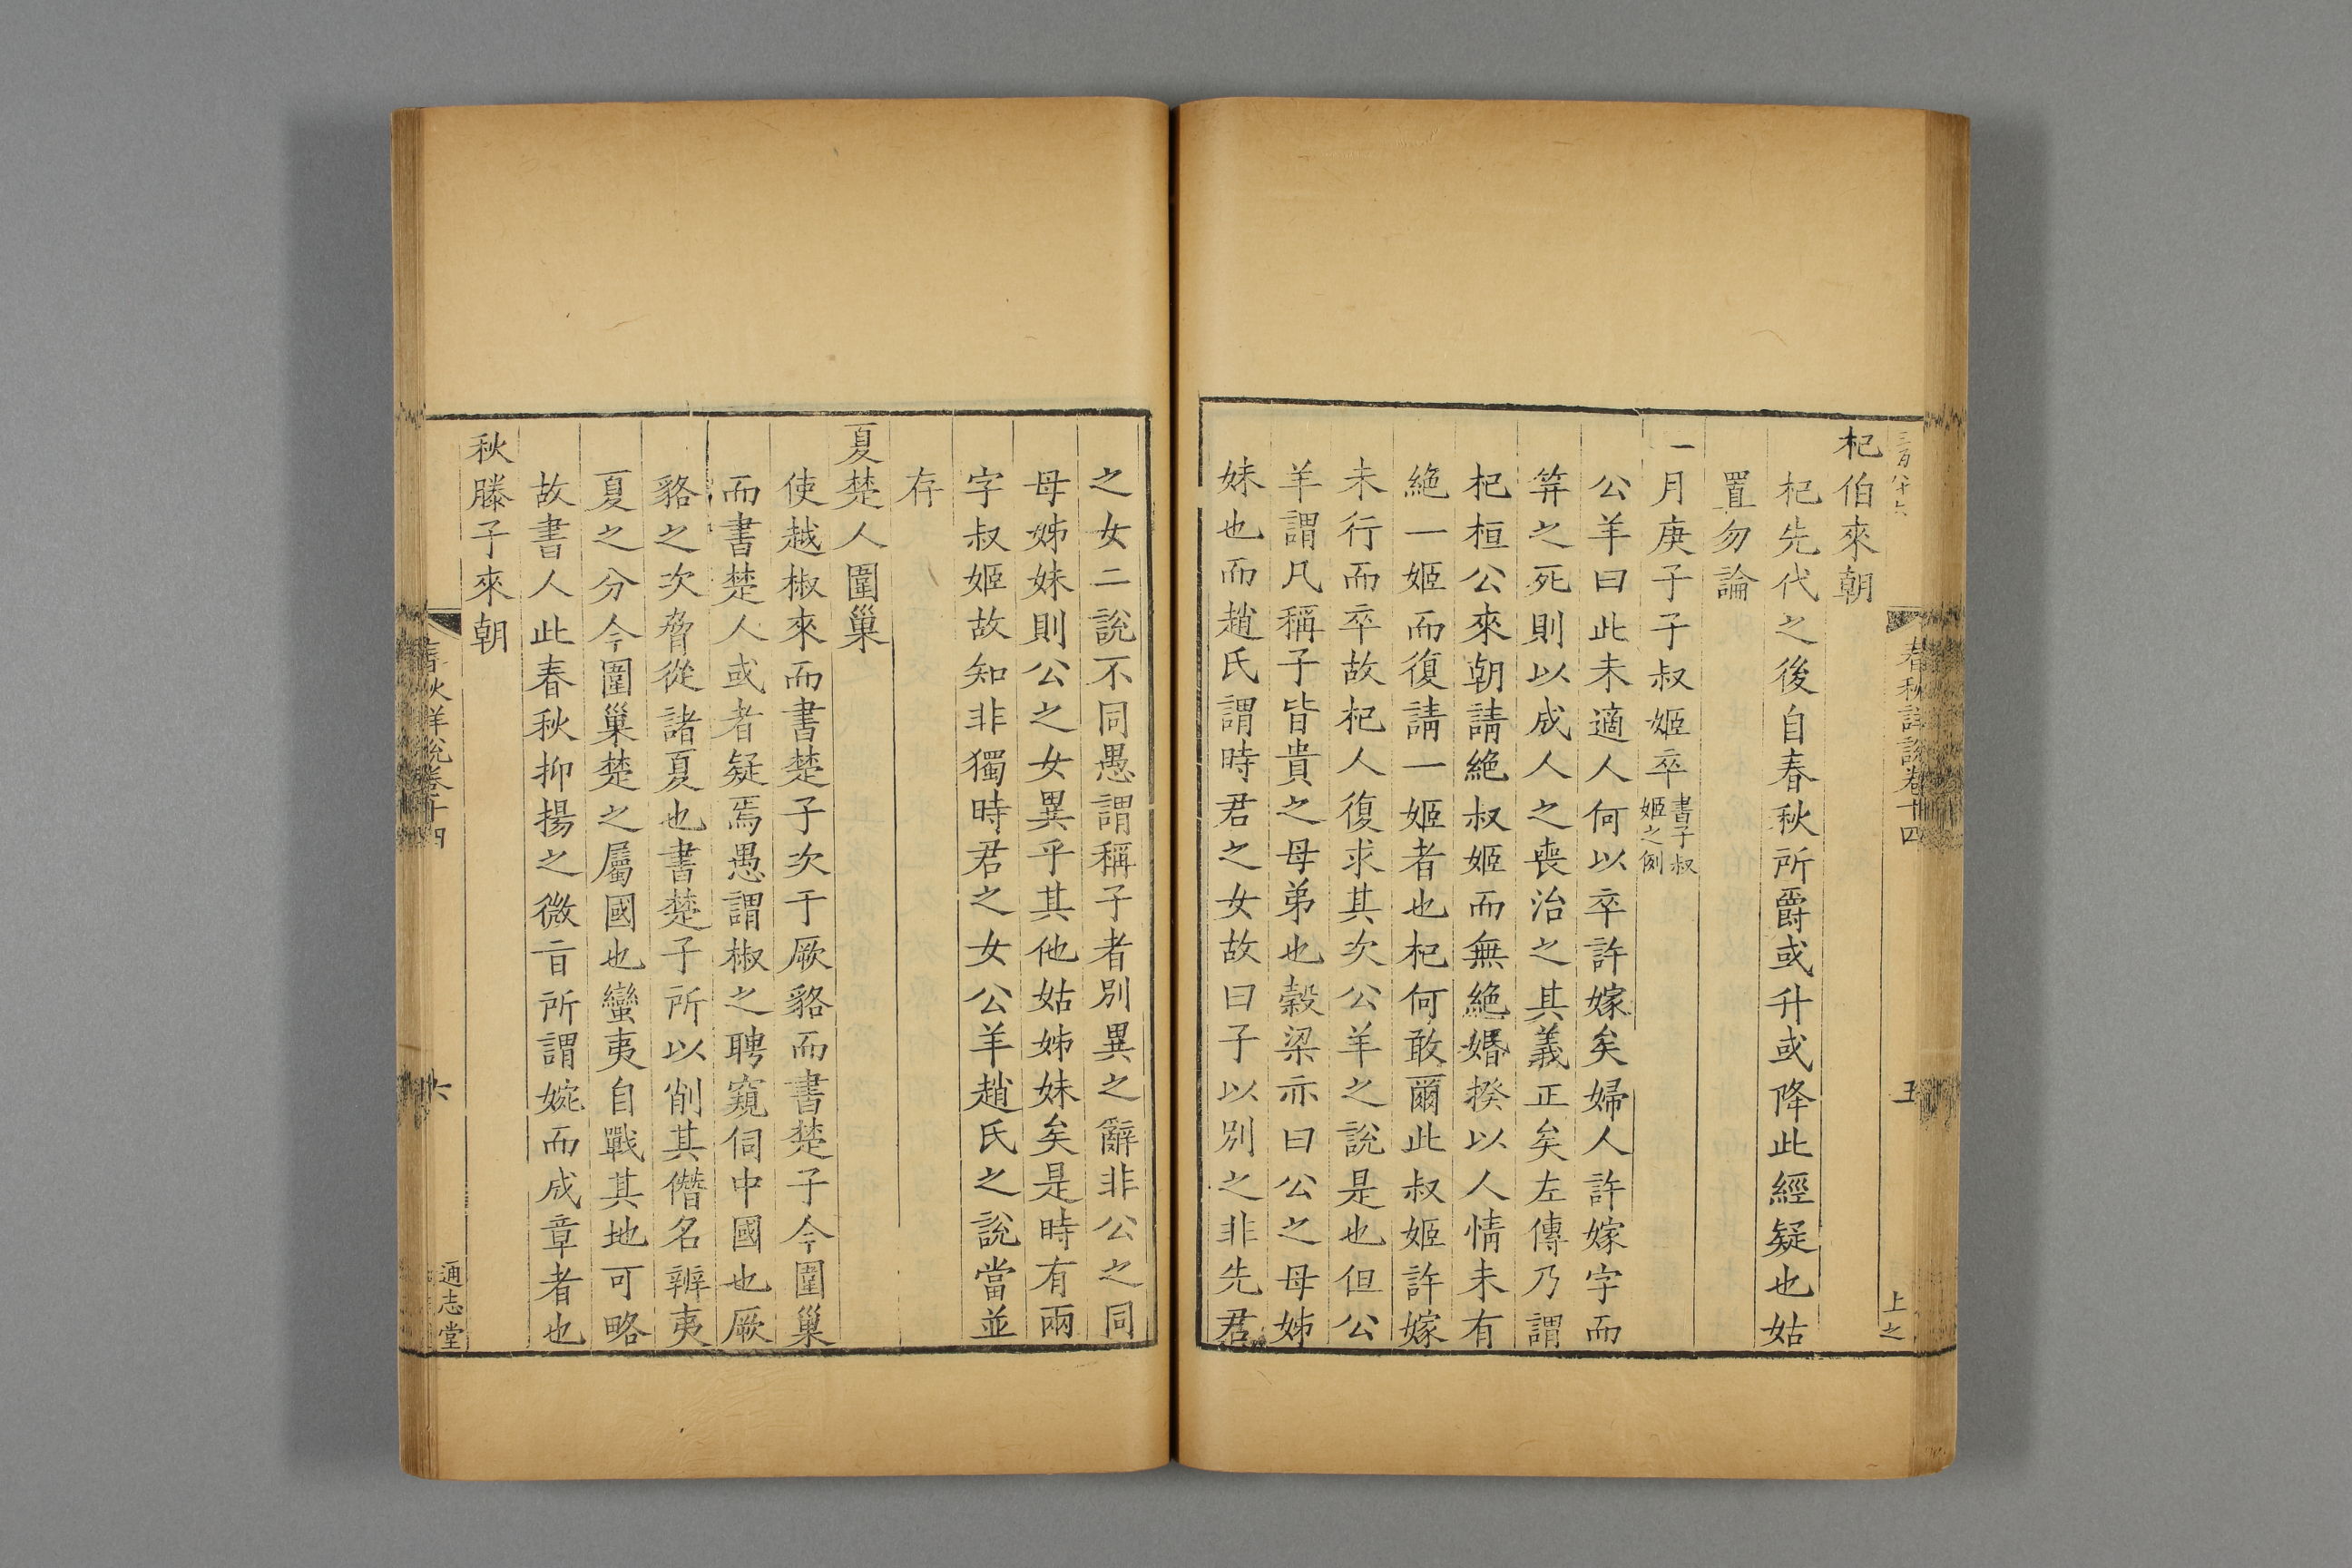 杞伯來朝
杞先代之後自春秋所爵或升或降此經疑也姑
置勿論
一月庚子子叔姬卒書子叔姬之例
公羊曰此未適人何以卒許嫁矣婦人許嫁字而
筓之死則以成人之喪治之其義正矣左傳乃謂
杞桓公來朝請絶叔姬而無絶婚揆以人情未有
絶一姬而復請一姬者也杞何敢爾此叔姬許嫁
未行而卒故杞人復求其次公羊之說是也但公
羊謂凡稱子皆貴之母弟也榖梁亦曰公之母姊
妹也而趙氏謂時君之女故曰子以別之非先君
之女二說不同愚謂稱子者別異之辭非公之同
母姊妹則公之女異乎其他姑姊妹矣是時有兩
字叔姬故知非獨時君之女公羊趙氏之說當並
存
夏楚人圍巢
使越椒來而書楚子次于厥貉而書楚子今圍巢
而書楚人或者疑焉愚謂椒之聘窺伺中國也厥
貉之次脅從諸夏也書楚子所以削其僭名辨夷
夏之分今圍巢楚之屬國也蠻夷自戰其地可略
故書人此春秋抑揚之微㫖所謂婉而成章者也
秋滕子來朝
春秋詳說卷十四
五
上之
春秋詳說卷十四
六
通志堂